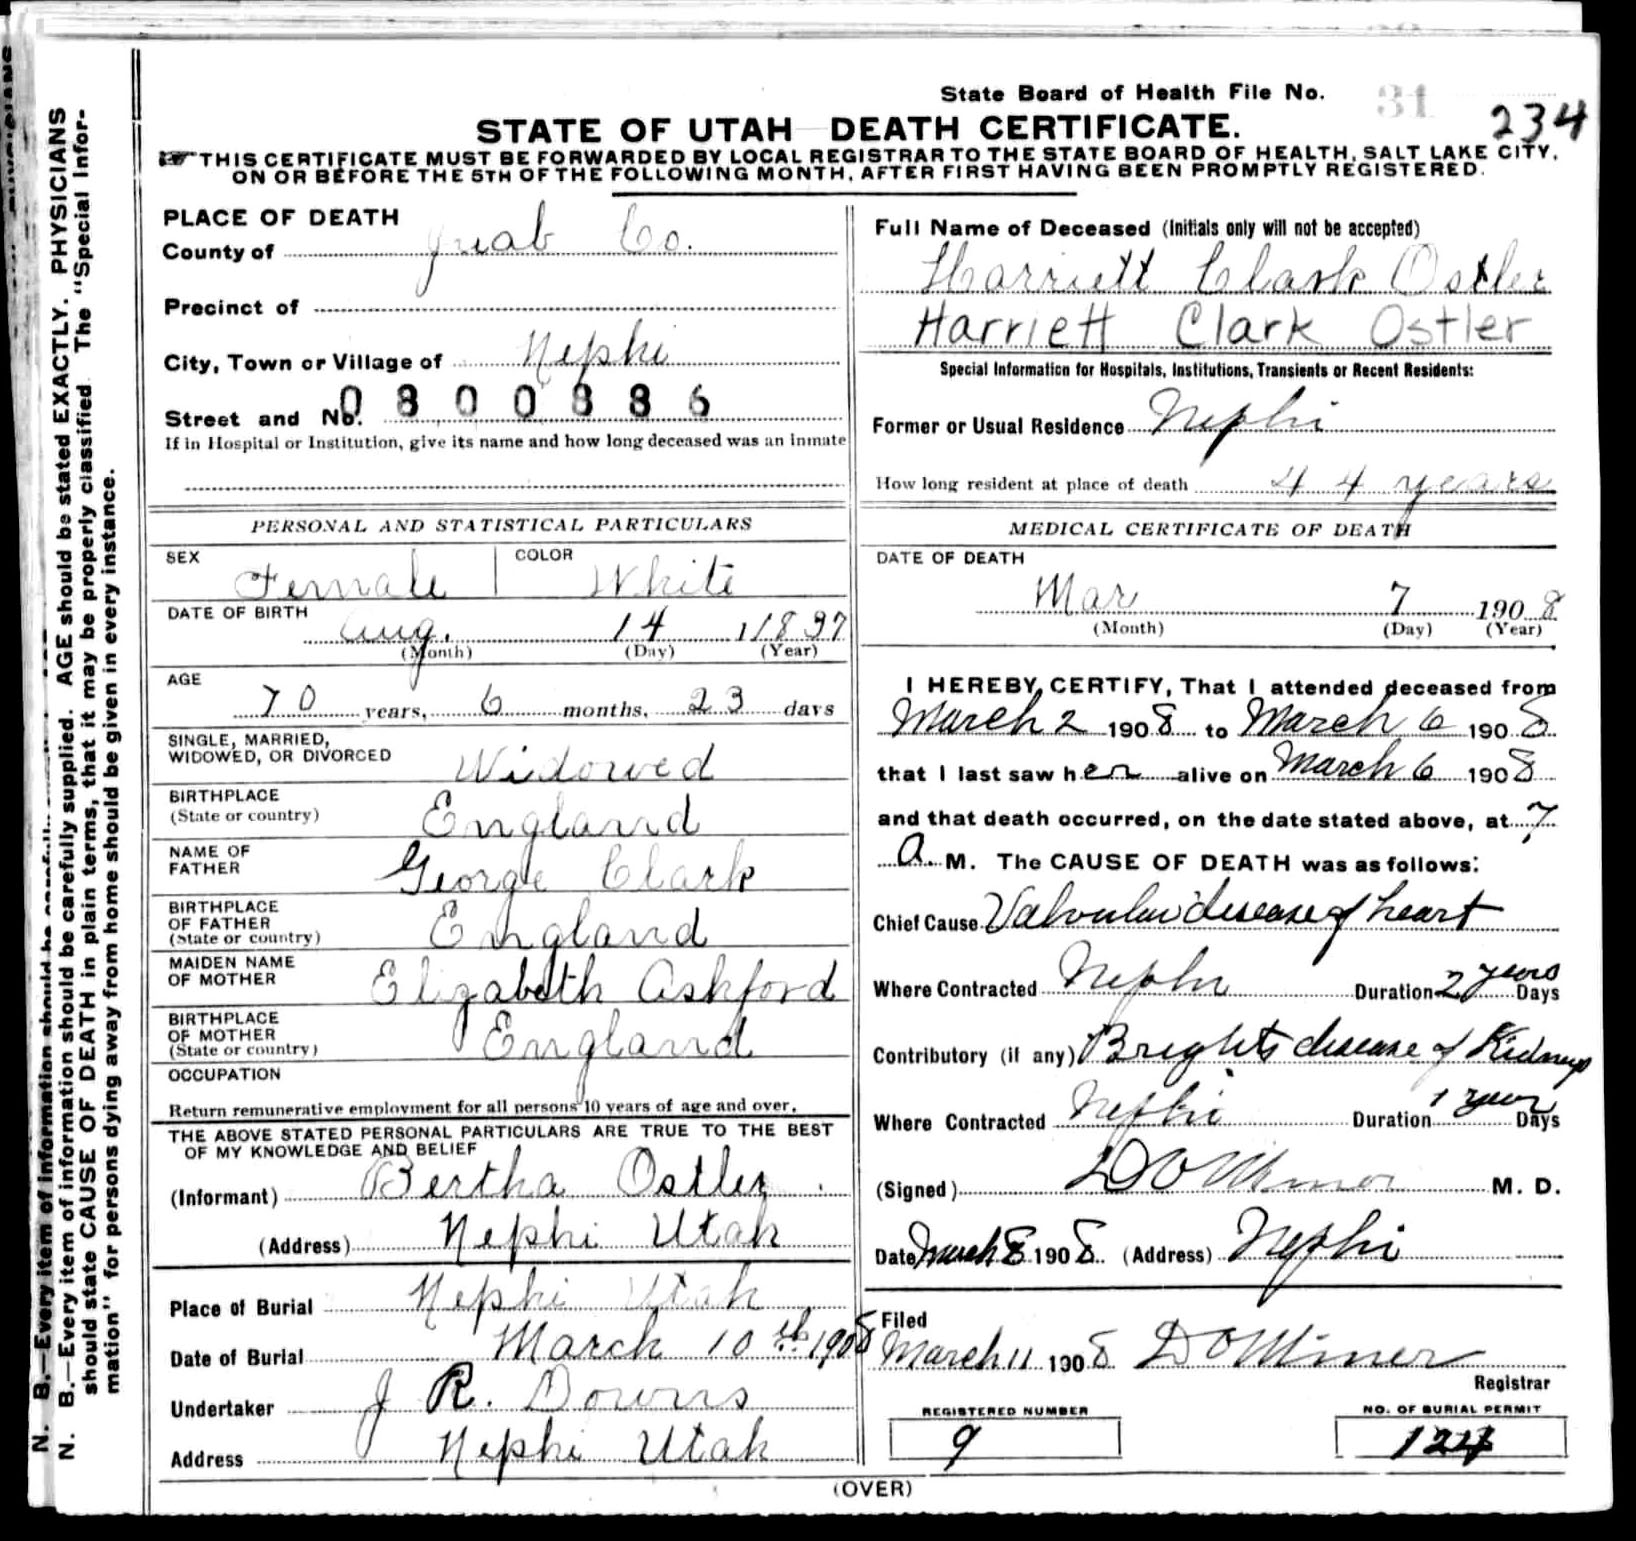 State Board of Health File No. 31 234
STATE OF UTAH DEATH CERTIFICATE.
THIS CERTIFICATE MUST BE FORWARDED BY LOCAL REGISTRAR TO THE STATE BOARD OF HEALTH, SALT LAKE CITY,
ON OR BEFORE THE 5TH OF THE FOLLOWING MONTH, AFTER FIRST HAVING BEEN PROMPTLY REGISTERED.
PLACE OF DEATH
County of Juab Co.
Precinct of
City, Town or Village of Nephi
Street and No. 0800886
If in Hospital or Institution, give its name and how long deceased was an inmate
PERSONAL AND STATISTICAL PARTICULARS
SEX Female COLOR White
DATE OF BIRTH
Aug. 14 1837
(Month) (Day) (Year)
AGE
70 years, 6 months, 23 days
SINGLE, MARRIED,
WIDOWED, OR DIVORCED Widowed
BIRTHPLACE
(State or country) England
NAME OF
FATHER George Clark
BIRTHPLACE
OF FATHER
(State or country) England
MAIDEN NAME
OF MOTHER Elizabeth Ashford
BIRTHPLACE
OF MOTHER
(State or country) England
OCCUPATION
Return remunerative employment for all persons 10 years of age and over.
THE ABOVE STATED PERSONAL PARTICULARS ARE TRUE TO THE BEST
OF MY KNOWLEDGE AND BELIEF
(Informant) Bertha Ostler
(Address) Nephi Utah
Place of Burial Nephi Utah
Date of Burial March 10th 1908
Undertaker J R. Downs
Address Nephi Utah
Full Name of Deceased (Initials only will not be accepted)
Harriett Clark Ostler
Harriett Clark Ostler
Special Information for Hospitals, Institutions, Transients or Recent Residents:
Former or Usual Residence Nephi
How long resident at place of death 44 years
MEDICAL CERTIFICATE OF DEATH
DATE OF DEATH
Mar 7 1908
(Month) (Day) (Year)
I HEREBY CERTIFY, That I attended deceased from
March 2 1908 to March 6 1908
that I last saw her alive on March 6 1908
and that death occurred, on the date stated above, at 7
a. M. The CAUSE OF DEATH was as follows:
Chief Cause Valvular disease of heart
Where Contracted Nephi Duration 2 years Days
Contributory (if any) Brights disease of Kidneys
Where Contracted Nephi Duration 1 year Days
(Signed) D O Miner M. D.
Date March 8 1908 (Address) Nephi
Filed
March 11 1908 D O Miner
Registrar
REGISTERED NUMBER
9
NO. OF BURIAL PERMIT
124
(OVER)
N. B.—Every item of information should be carefully supplied. AGE should be stated EXACTLY. PHYSICIANS
should state CAUSE OF DEATH in plain terms, that it may be properly classified. The "Special Infor-
mation" for persons dying away from home should be given in every instance.
N. B.—Every item of information should be